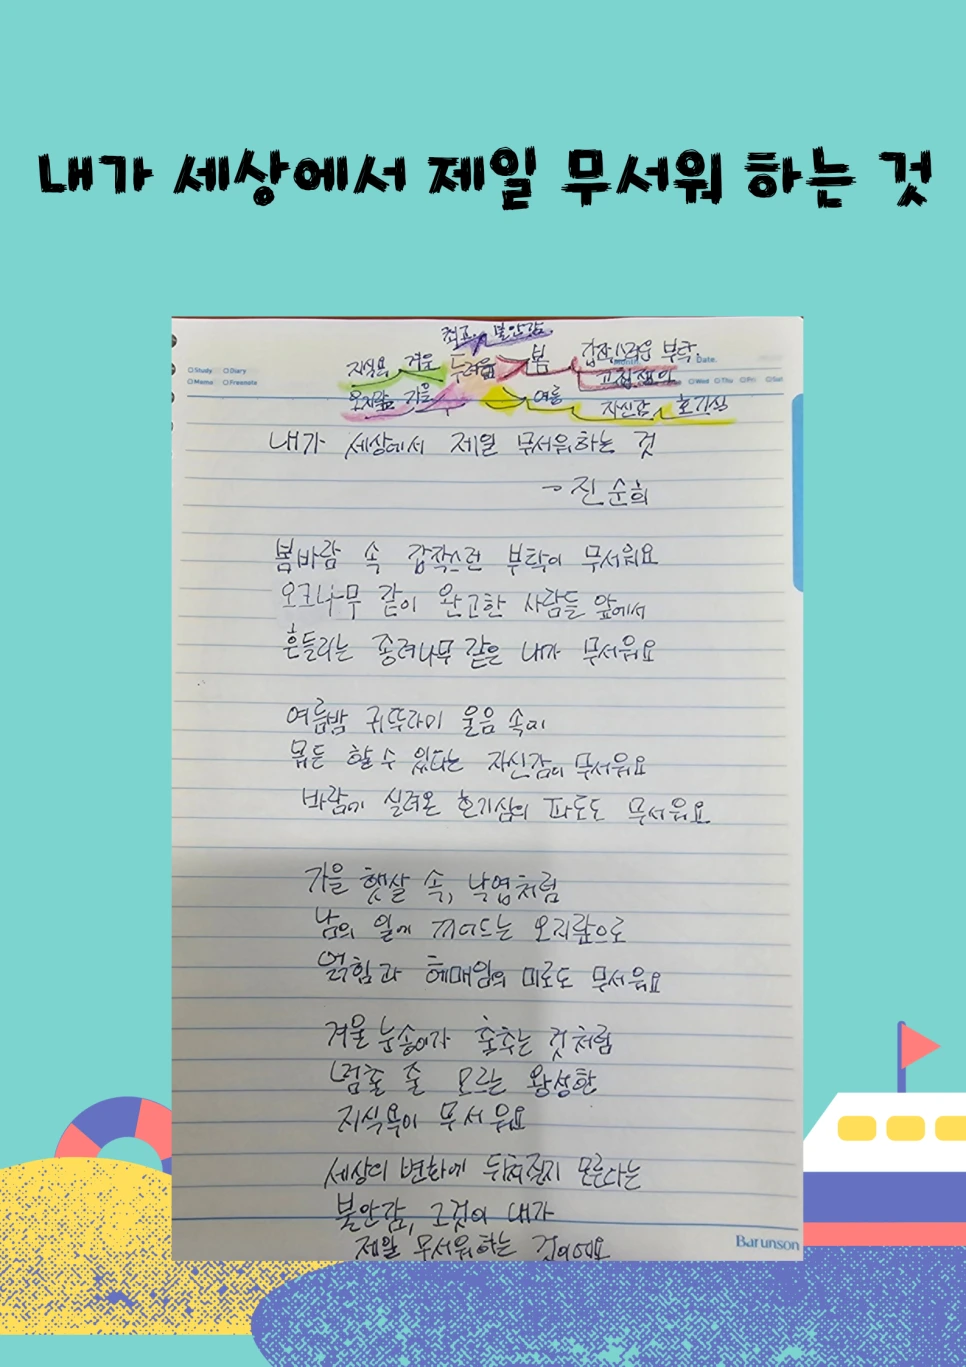 내가 세상에서 제일 무서워 하는 것
불안감
지식욕 겨울 두려움 봄 갑작스러운 부탁
Date.
Study Diary
Memo Freenote
Wed Thu Fri Sat
오지랖 가을 여름 자신감 호기심
내가 세상에서 제일 무서워하는 것
- 진순희
봄바람 속 갑작스런 부탁이 무서워요
오크나무 같이 완고한 사람들 앞에서
흔들리는 종려나무 같은 내가 무서워요
여름밤 귀뚜라미 울음 속에
뭐든 할 수 있다는 자신감이 무서워요
바람에 실려온 호기심의 파도도 무서워요
가을 햇살 속, 낙엽처럼
남의 일에 끼어드는 오지랖으로
얽힘과 헤매임의 미로도 무서워요
겨울 눈송이가 춤추는 것처럼
멈출 줄 모르는 왕성한
지식욕이 무서워요
세상의 변화에 뒤쳐질지 모른다는
불안감, 그것이 내가
제일 무서워하는 것이에요
Barunson